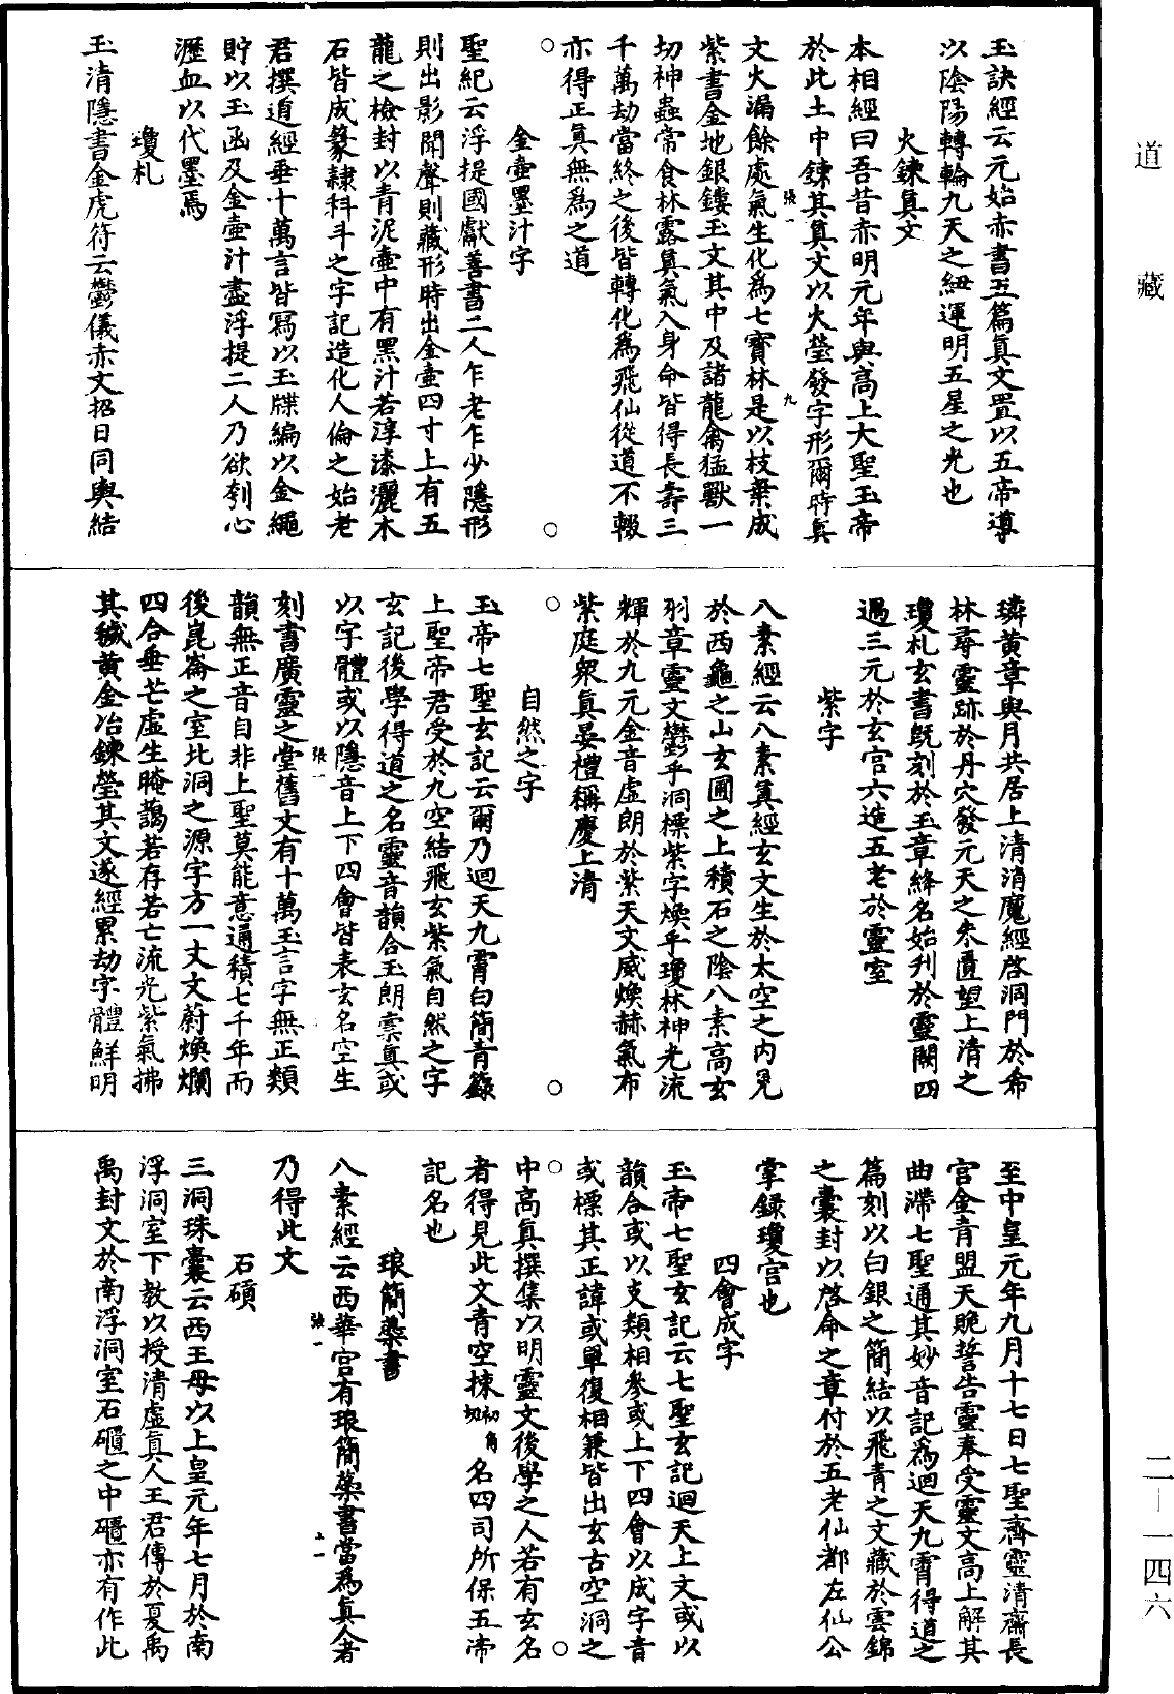 道藏
玉訣經云元始赤書五篇真文置以五帝導
以陰陽轉輪九天之紐運明五星之光也
火鍊真文
本相經曰吾昔赤明元年與高上大聖玉帝
於此土中鍊其真文以火瑩發字形爾時真
張一
九
文火漏餘處氣生化爲七寶林是以枝葉成
紫書金地銀鏤玉文其中及諸龍禽猛獸一
切神蟲常食林露真氣入身命皆得長壽三
千萬劫當終之後皆轉化爲飛仙從道不輟
亦得正真無爲之道
金壺墨汁字
聖紀云浮提國獻善書二人乍老乍少隱形
則出影聞聲則藏形時出金壺四寸上有五
龍之檢封以青泥壺中有黑汁若淳漆灑木
石皆成篆隸科斗之字記造化人倫之始老
君撰道經垂十萬言皆寫以玉牒編以金繩
貯以玉函及金壺汁盡浮提二人乃欲刳心
瀝血以代墨焉
瓊札
玉清隱書金虎符云鬱儀赤文招日同輿結
璘黃章與月共居上清消魔經啓洞門於希
林尋靈跡於丹穴發元天之朱匱望上清之
瓊札玄書既刻於玉章絳名始刋於靈闕四
過三元於玄宮六造五老於靈室
紫字
八素經云八素真經玄文生於太空之内見
於西龜之山玄圃之上積石之陰八素高玄
羽章靈文鬱乎洞標紫字煥乎瓊林神光流
輝於九元金音虛朗於紫天文威煥赫氣布
紫庭衆真晏禮稱慶上清
自然之字
玉帝七聖玄記云爾乃迴天九霄白簡青籙
上聖帝君受於九空結飛玄紫氣自然之字
玄記後學得道之名靈音韻合玉朗稟真或
以字體或以隱音上下四會皆表玄名空生
張一
刻書廣靈之堂舊文有十萬玉言字無正類
韻無正音自非上聖莫能意通積七千年而
後崑崙之室北洞之源字方一丈文蔚煥爛
四合垂芒虛生晻藹若存若亡流光紫氣拂
其穢黃金冶鍊瑩其文遂經累劫字體鮮明
至中皇元年九月十七日七聖齊靈清齋長
宮金青盟天貺誓告靈奉受靈文高上解其
曲滯七聖通其妙音記爲迴天九霄得道之
篇刻以白銀之簡結以飛青之文藏於雲錦
之囊封以啓命之章付於五老仙都左仙公
掌錄瓊宮也
四會成字
玉帝七聖玄記云七聖玄記迴天上文或以
韻合或以支類相參或上下四會以成字音
或標其正諱或單復相兼皆出玄古空洞之
中高真撰集以明靈文後學之人若有玄名
者得見此文青空㨂初角切名四司所保五帝
記名也
琅簡蘂書
八素經云西華宮有琅簡蘂書當爲真人者
張一
十一
乃得此文
石碩
三洞珠囊云西王母以上皇元年七月於南
浮洞室下教以授清虛真人王君傳於夏禹
禹封文於南浮洞室石𥖎之中𥖎亦有作此
二—一四六